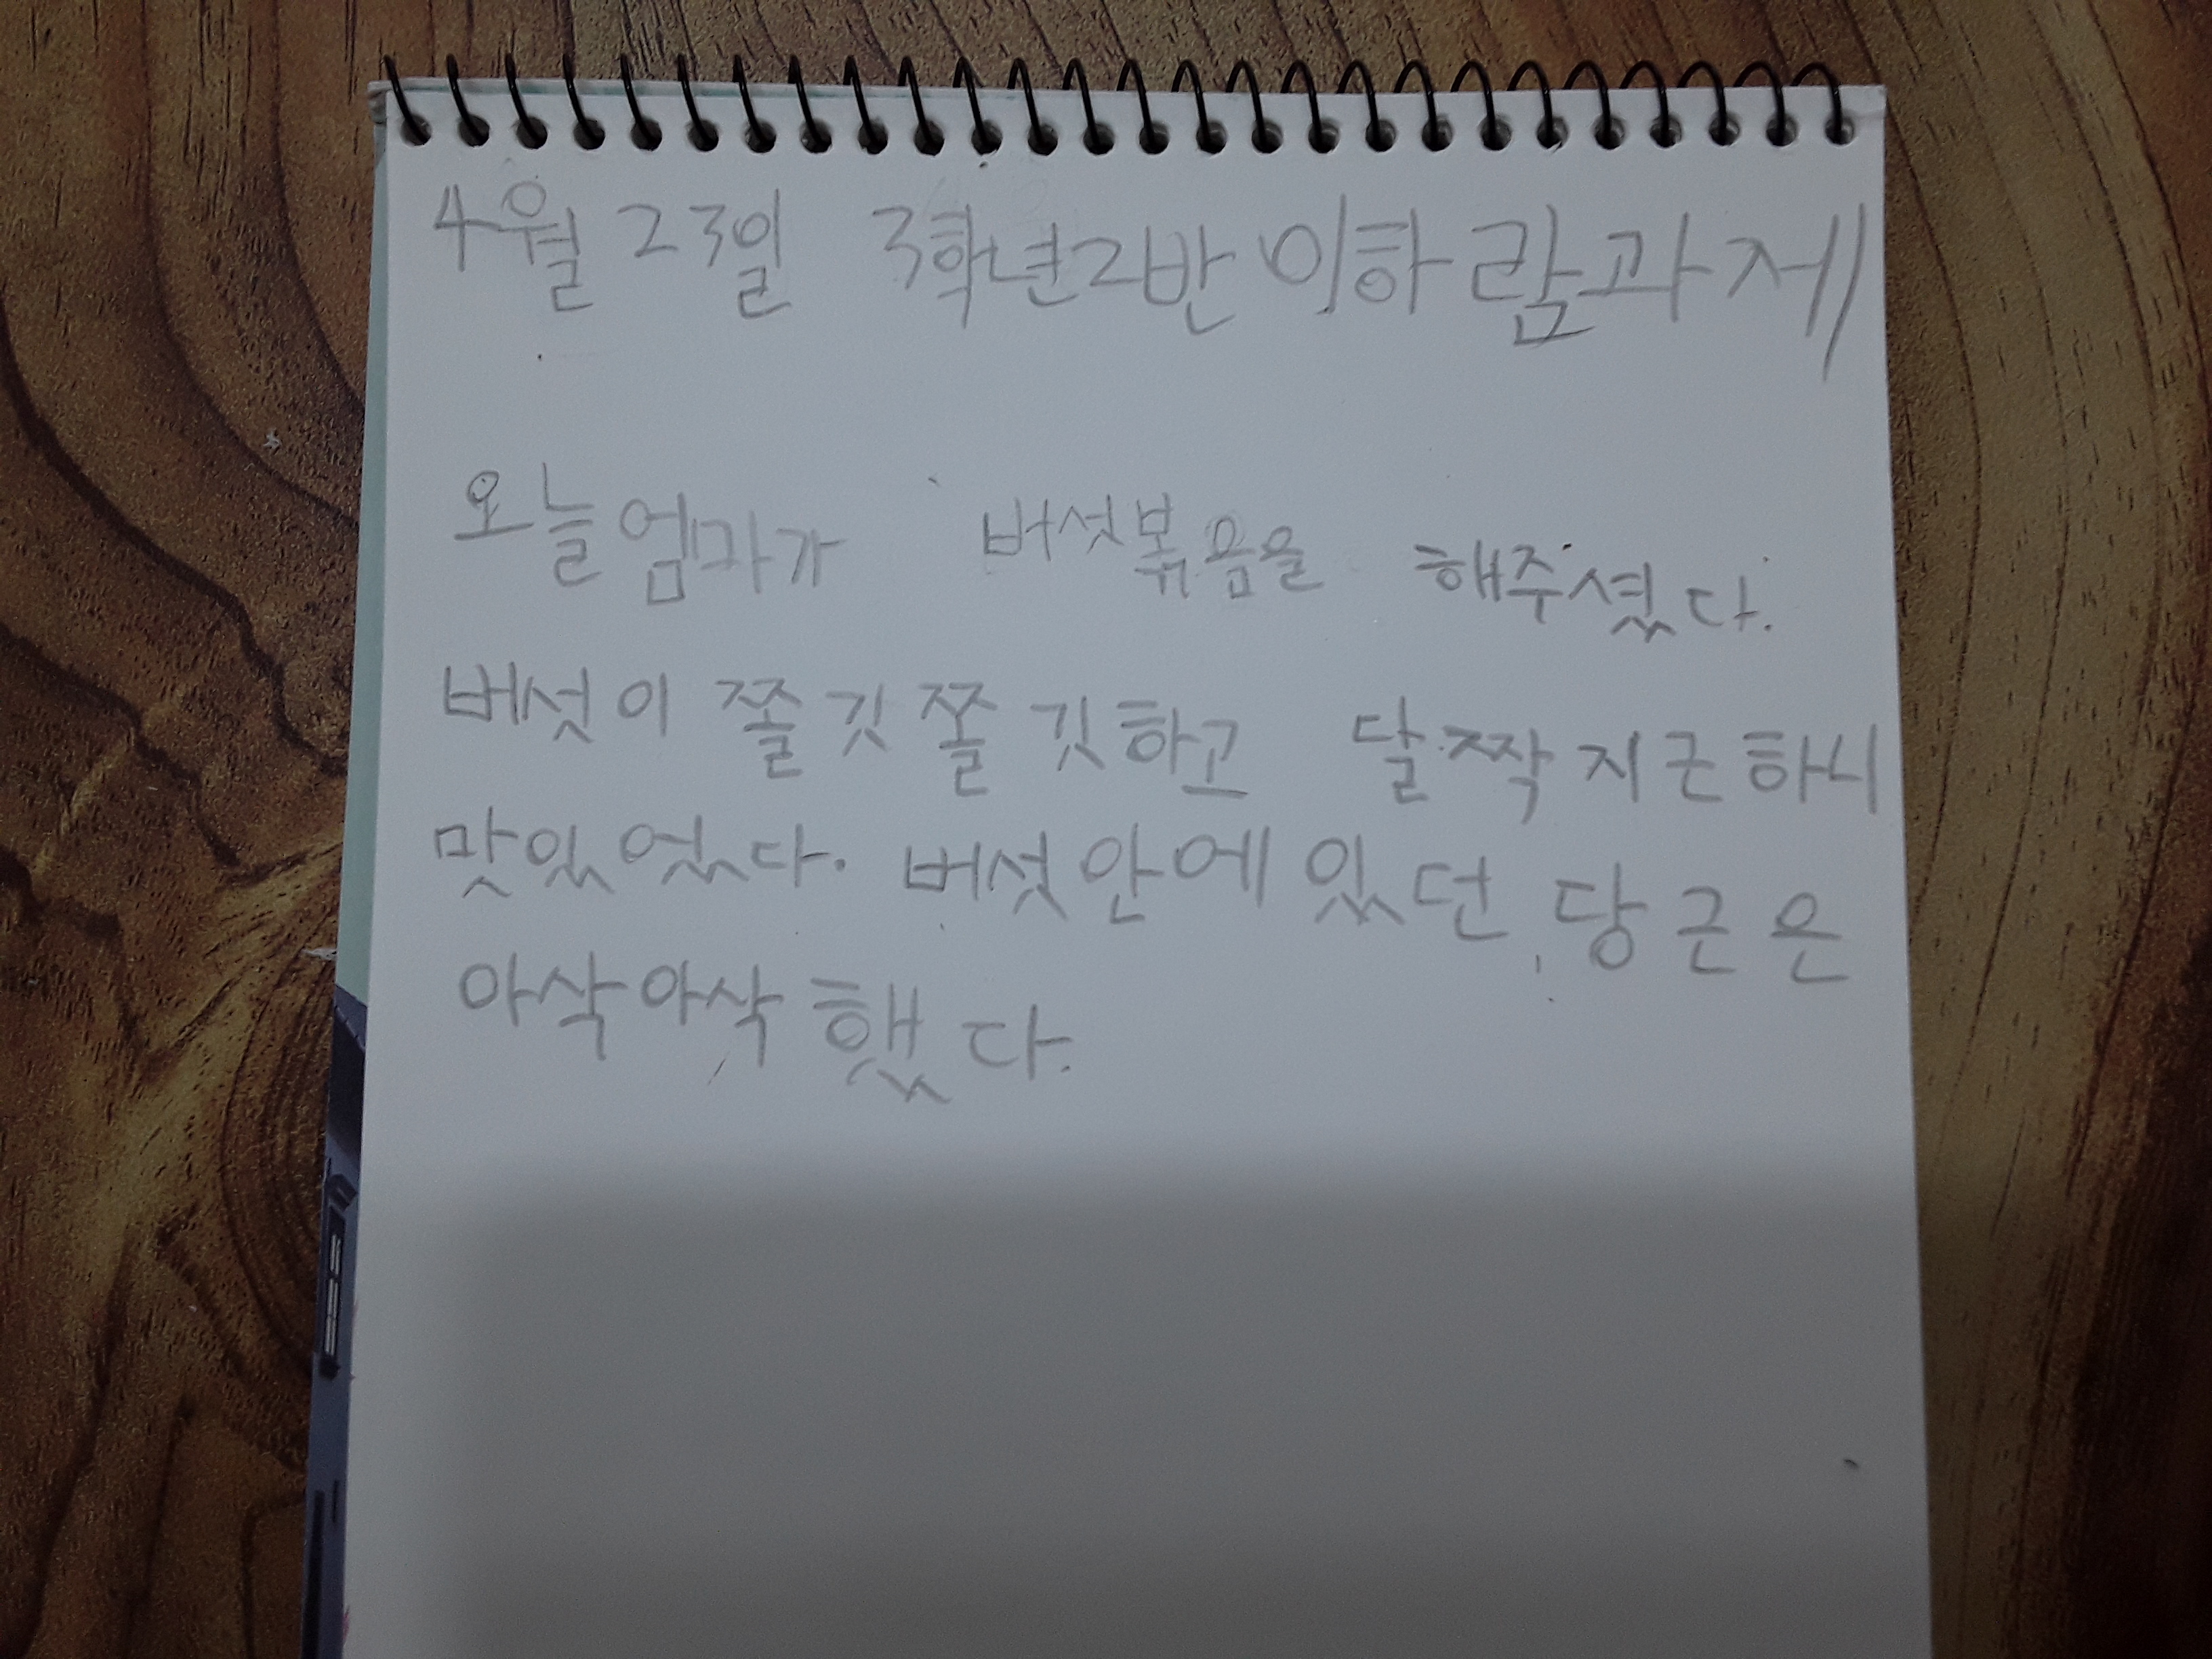 4월 23일 3학년2반 이하람과제
오늘엄마가 버섯볶음을 해주셨다.
버섯이 쫄깃쫄깃하고 달짝지근하니
맛있었다. 버섯안에 있던 당근은
아삭아삭했다.